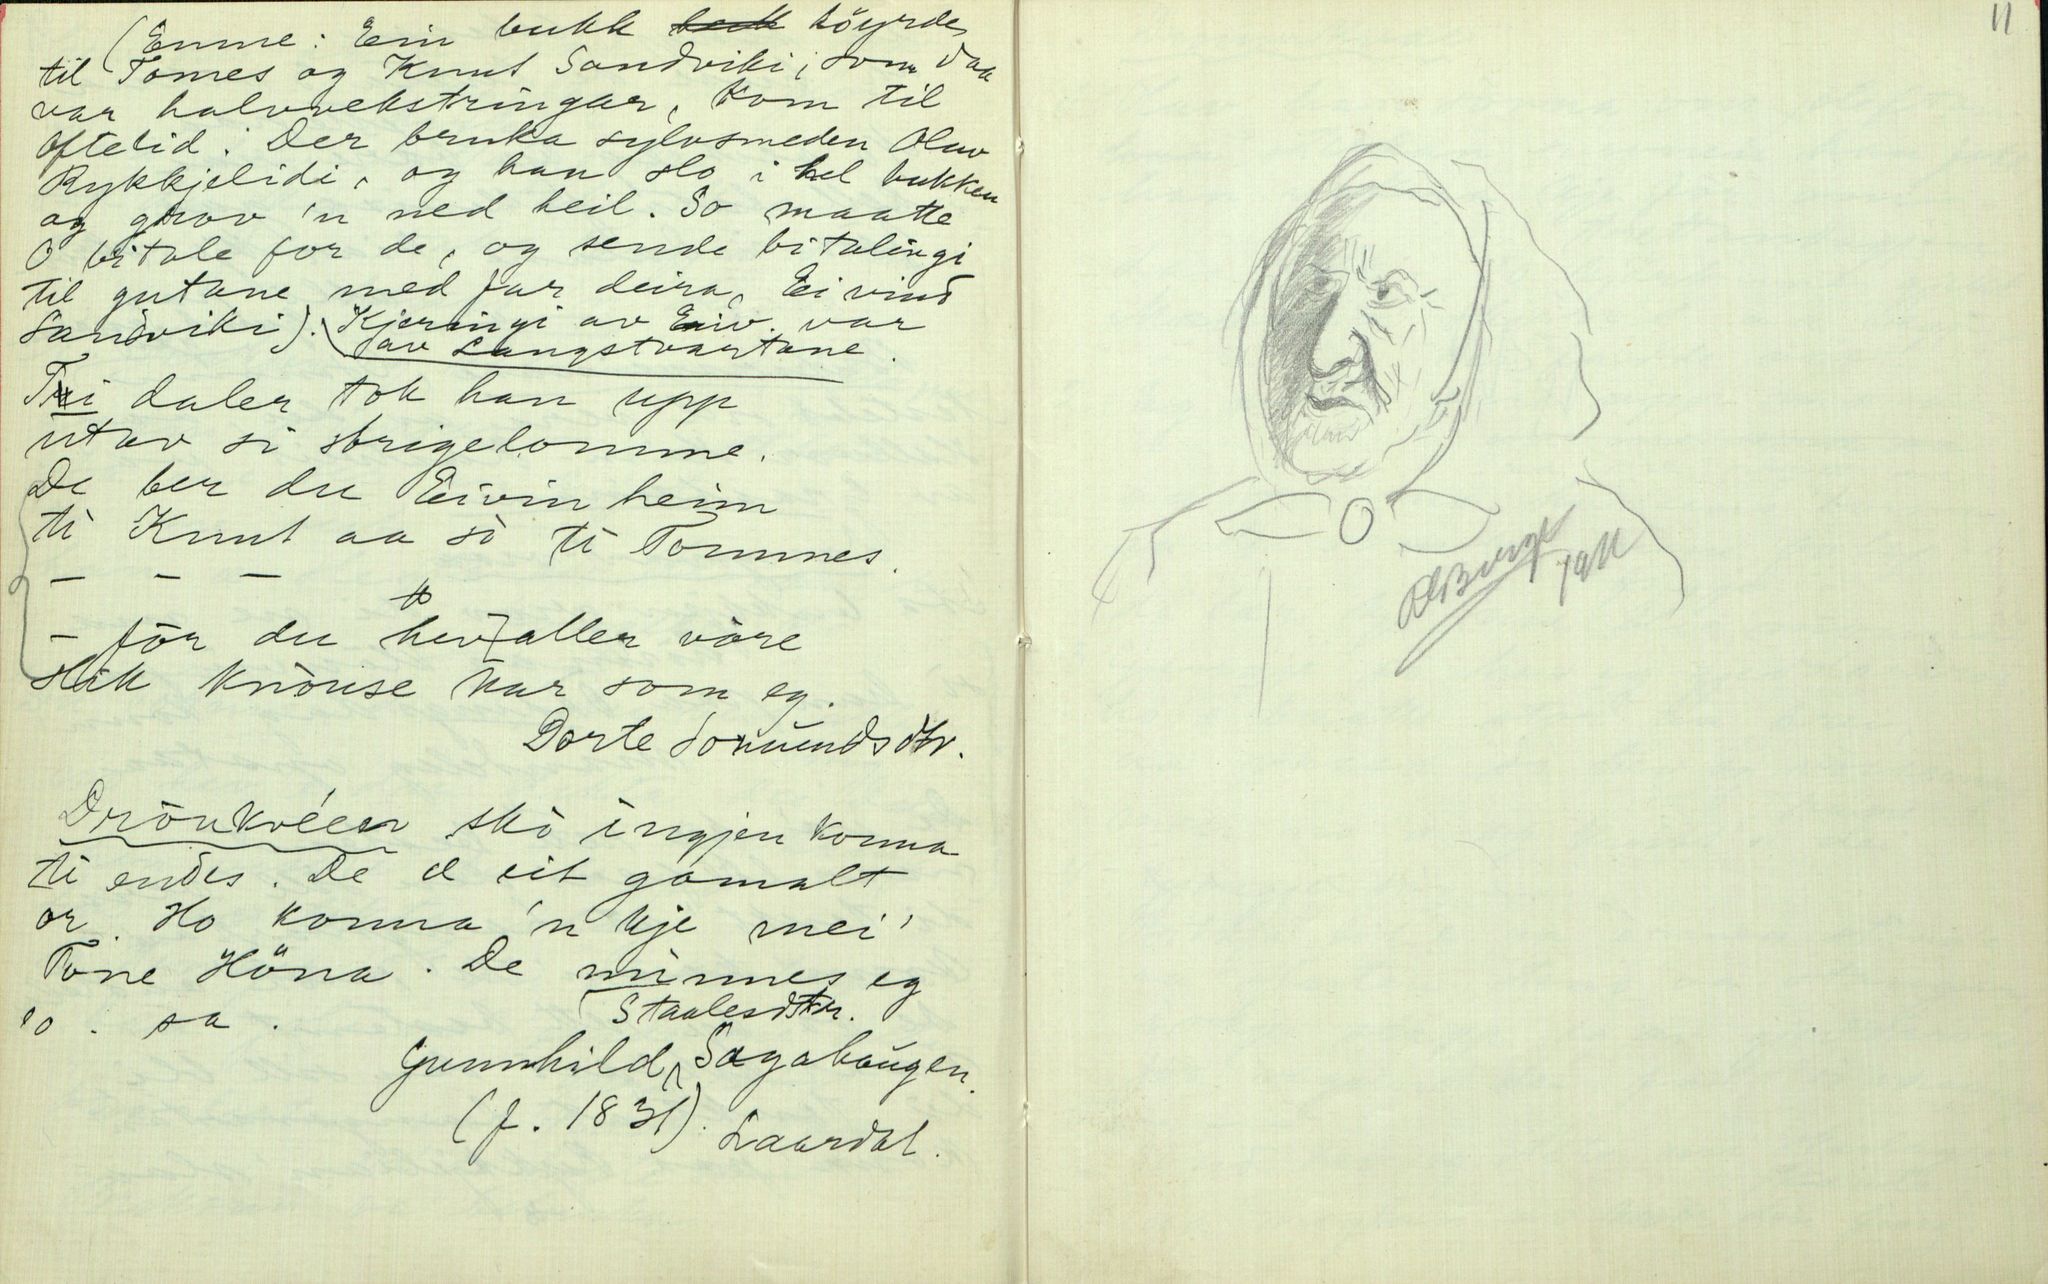 (Emne: Ein bukk höyrde
til Tomes og Knut Sandviki, som daa
var halvvekstringar, kom til
Oftelid. Der bruka sylvsmeden Olav
Rykkjelidi, og han slo i hel bukken
og grov 'n ned heil. So maatte
O bitale for de, og sende bitalingi
til gutane med far deira, Eivind
Sandviki). Kjeringi av Eiv. var
av Langstvartane.
Tri daler tok han upp
utav si strigelomme.
De ber du Eivin heim
ti Knut aa so ti Tommes.
– – –
– för du hev aller vore
slik knouse kar som eg.
Dorte Somundsdtr.
Drönkvéen sko ingjen konna
ti endes. De æ eit gamalt
or. Ho konna 'n kje mei'
Tone Höna. De minnes eg
o. sa.
Staalesdtr.
Gunnhild Sagabaugen.
(f. 1831). Laardal.
11
OBerge
1911